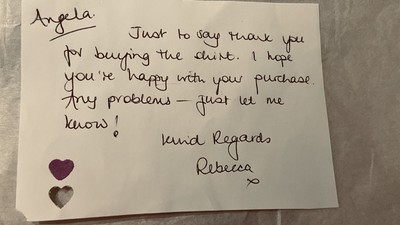 Angela.
Just to say thank you
for buying the shirt. I hope
you're happy with your purchase.
Any problems – just let me
know!
Kind Regards
Rebecca
x